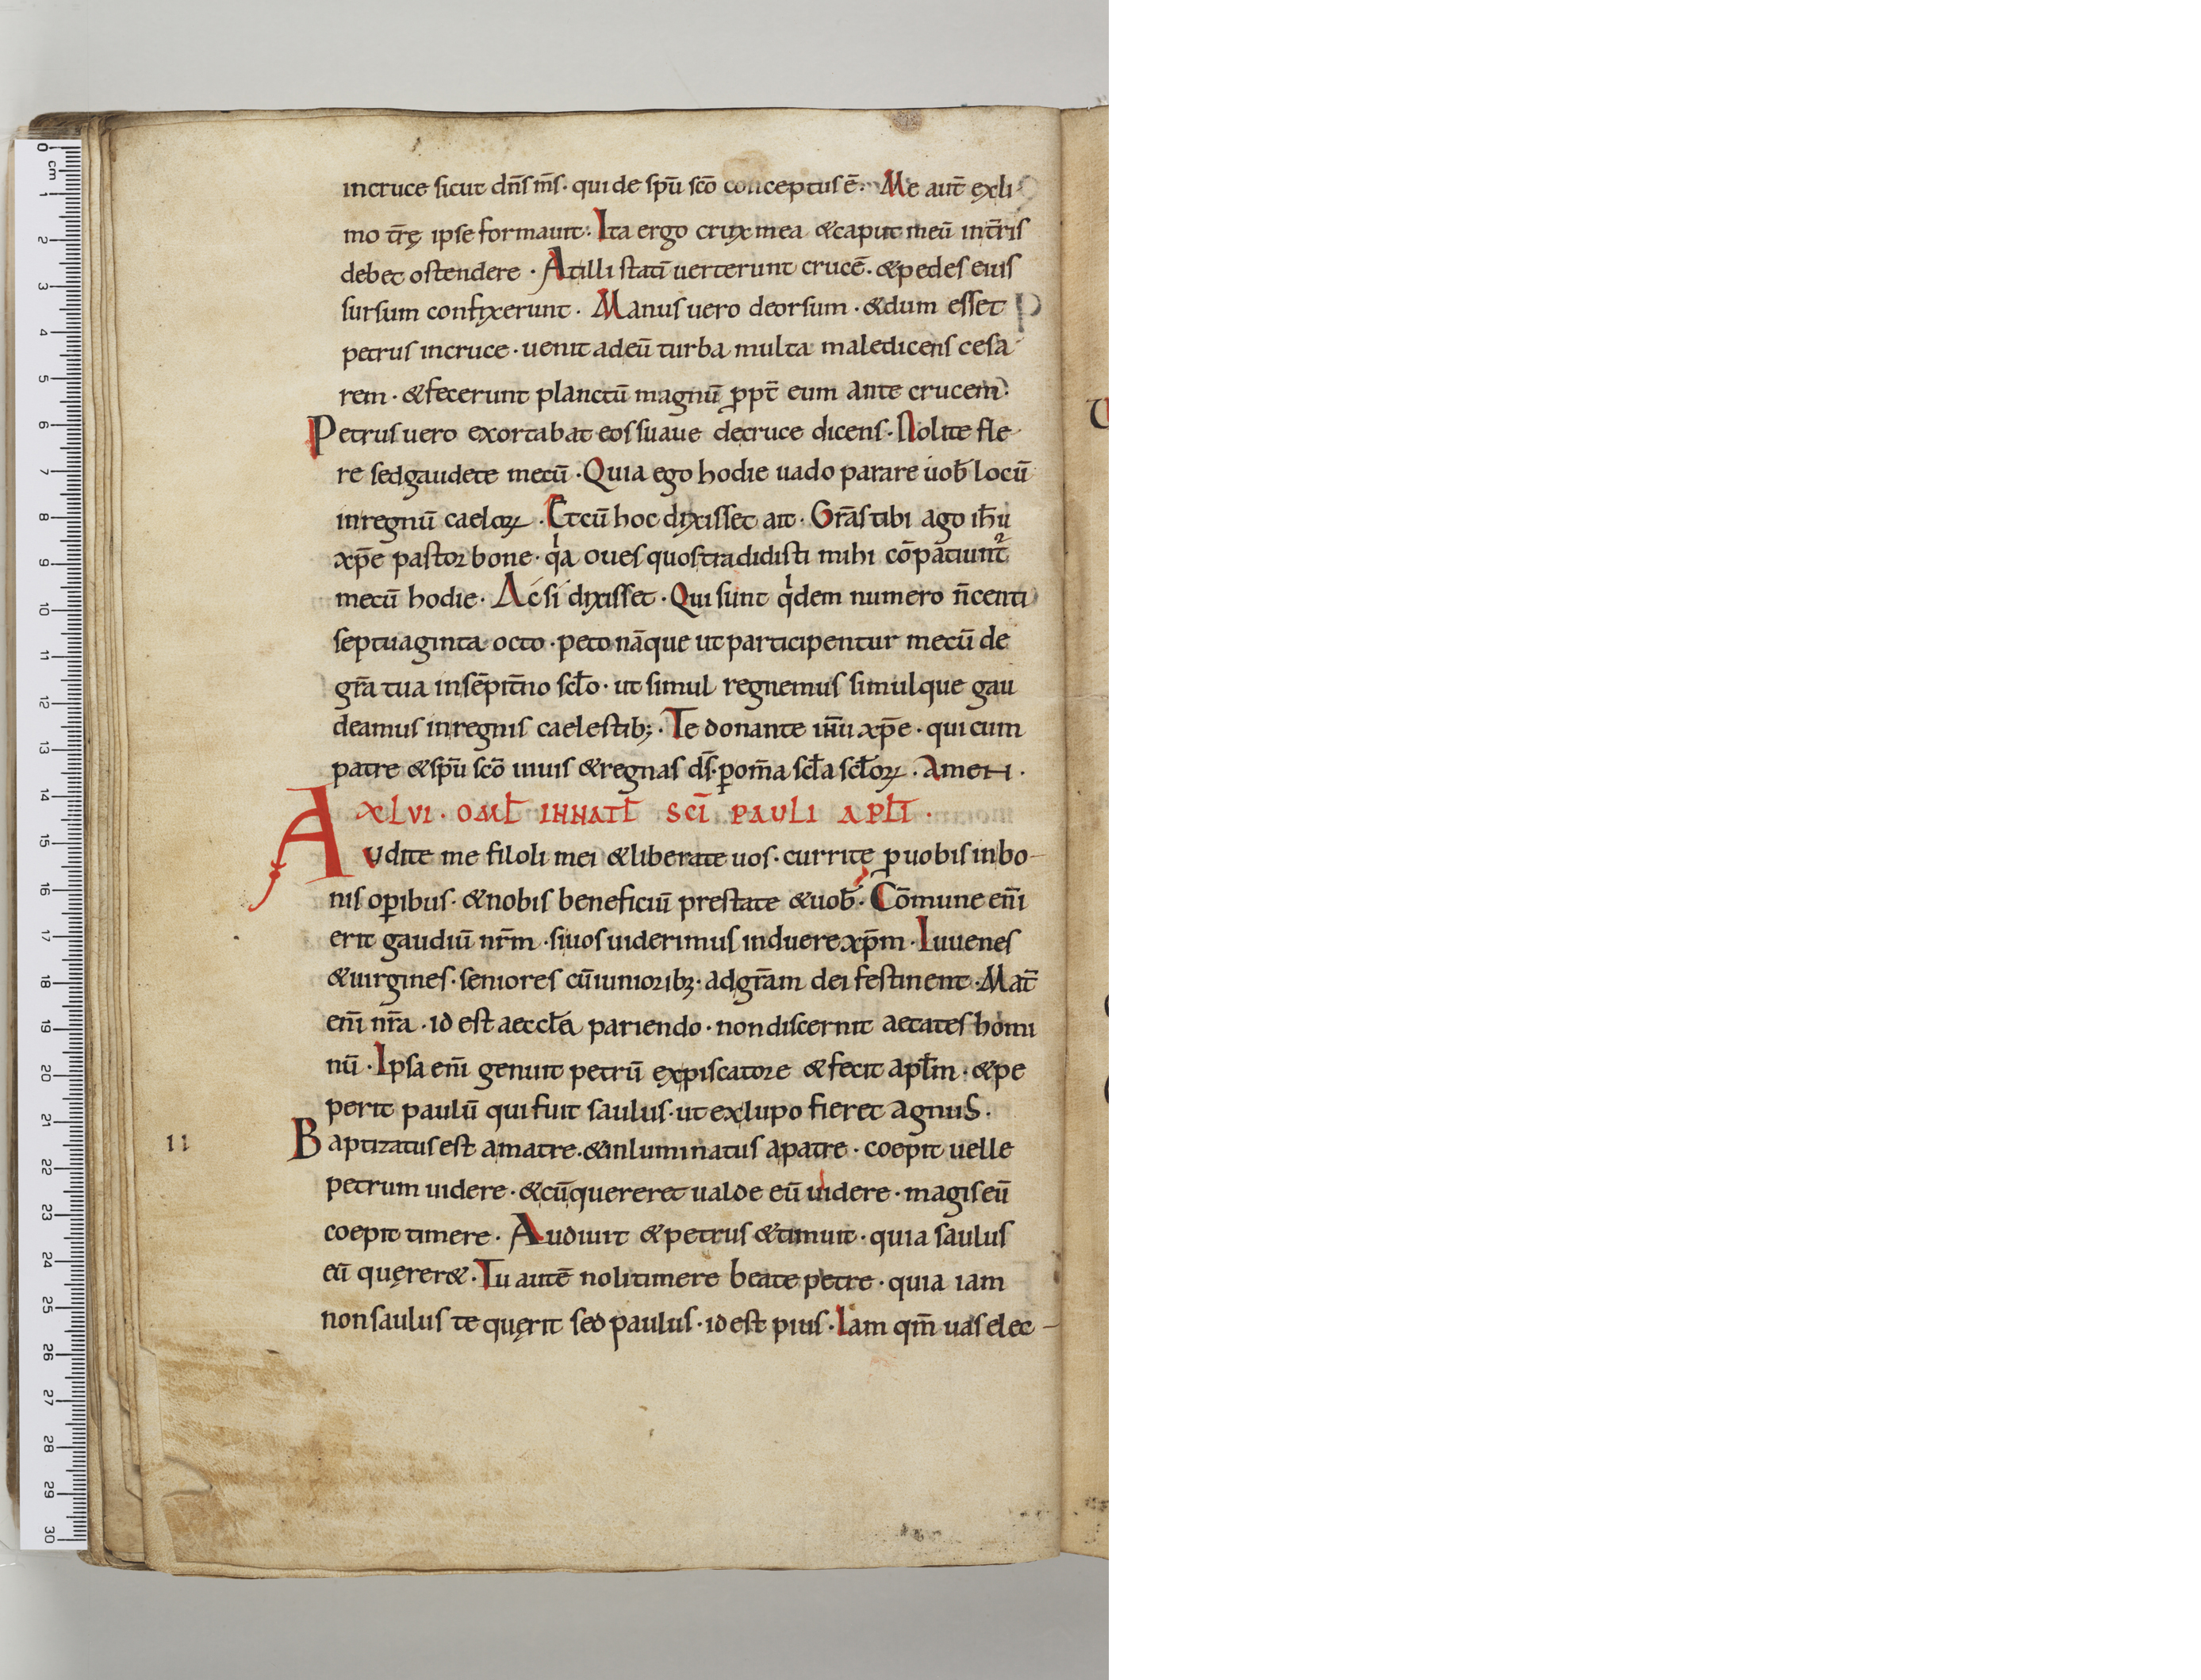 incruce sicut dn̄s m̄s· qui de spū scō conceptus ē· Me aut̄ exli
mo tr̄ę ipse formauit· Ita ergo crux mea &caput meū int̄ris
debet ostendere· Atilli statī uerterunt crucē· &pedes eius
sursum confixerunt· Manus uero deorsum· &dum esset
petrus incruce· uenit adeū turba multa maledicens cesa
rem· &fecerunt planctū magnū ꝓpt̄ eum ante crucem·
Petrus uero exortabat eos suaue decruce dicens· Nolite fle
re sedgaudete mecū· Quia ego hodie uado parare uob̄ locū
inregnū caeloꝝ· Etcū hoc dixisset ait· Gr̄as tibi ago ih̄u
xp̄e pastor bone· qͥa oues quos tradidisti mihi cōpatiunt᷑
mecū hodie· Ac si dixisset· Qui sunt qͥdem numero n̄centi
septuaginta octo· peto nāque ut participentur mecū de
gr̄a tua insēpit̄no scl̄o· ut simul regnemus simulque gau
deamus inregnis caelestib;· Te donante ih̄u xp̄e· qui cum
patre &spū scō uiuis &regnas ds̄· ꝑom̄a scl̄a scl̄oꝝ· Amen·
XLVI· OML̄ INNATL̄ SCĪ PAULI APLĪ·
Audite me filoli mei &liberate uos· currite ꝓuobis inbo-
nis oꝑibus· &nobis beneficiū prestate &uob̄· Cōmune enī
erit gaudiū nr̄m· siuos uiderimus induere xp̄m· Iuuenes
&uirgines· seniores cū iuniorib;· adgr̄am dei festinent· Mat̄
enī nr̄a· id est aeccl̄ea pariendo· non discernit aetates homi
nū· Ipsa enī genuit petrū expiscatore &fecit apl̄m· &pe
perit paulū qui fuit saulus· ut exlupo fieret agnus·
11
Baptizatus est amatre· &inluminatus apatre· coepit uelle
petrum uidere· &cū quereret ualde eū uidere· magis eū
coepit timere· Audiuit &petrus &timuit· quia saulus
eū quęrer&· Tu autē noli timere beate petre· quia iam
non saulus te quęrit sed paulus· id est pius· Iam qm̄ uas elec-